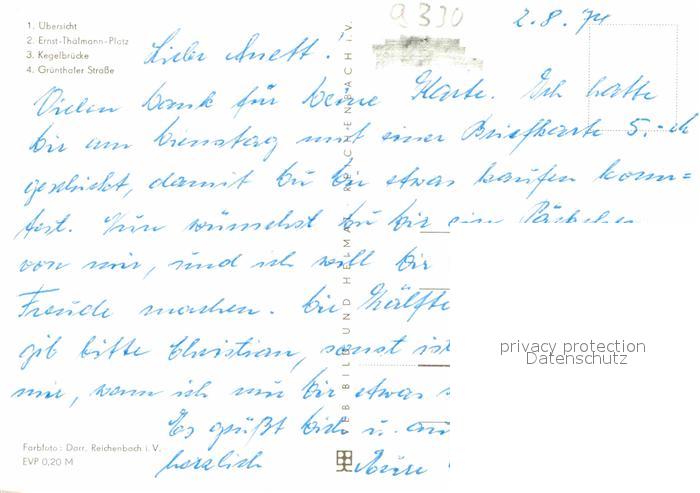 1. Übersicht
2. Ernst-Thälmann-Platz
3. Kegelbrücke
4. Grünthaler Straße
9330
2.8.74
Liebe Anett!
Vielen Dank für Deine Karte. Ich hatte
Dir am Dienstag mit einer Briefkarte 5.-
geschickt, damit Du Dir etwas kaufen konn=
test. Nun wünschst Du Dir ein Päckchen
von mir, und ich will Dir
Freude machen. Die Hälfte
gib bitte Christian, sonst ist
mir, wenn ich nur Dir etwas
Es grüßt Dich u.
herzlich
VEB BILD UND HEIMAT REICHENBACH I. V.
Farbfoto: Darr, Reichenbach i. V.
EVP 0,20 M
privacy protection
Datenschutz